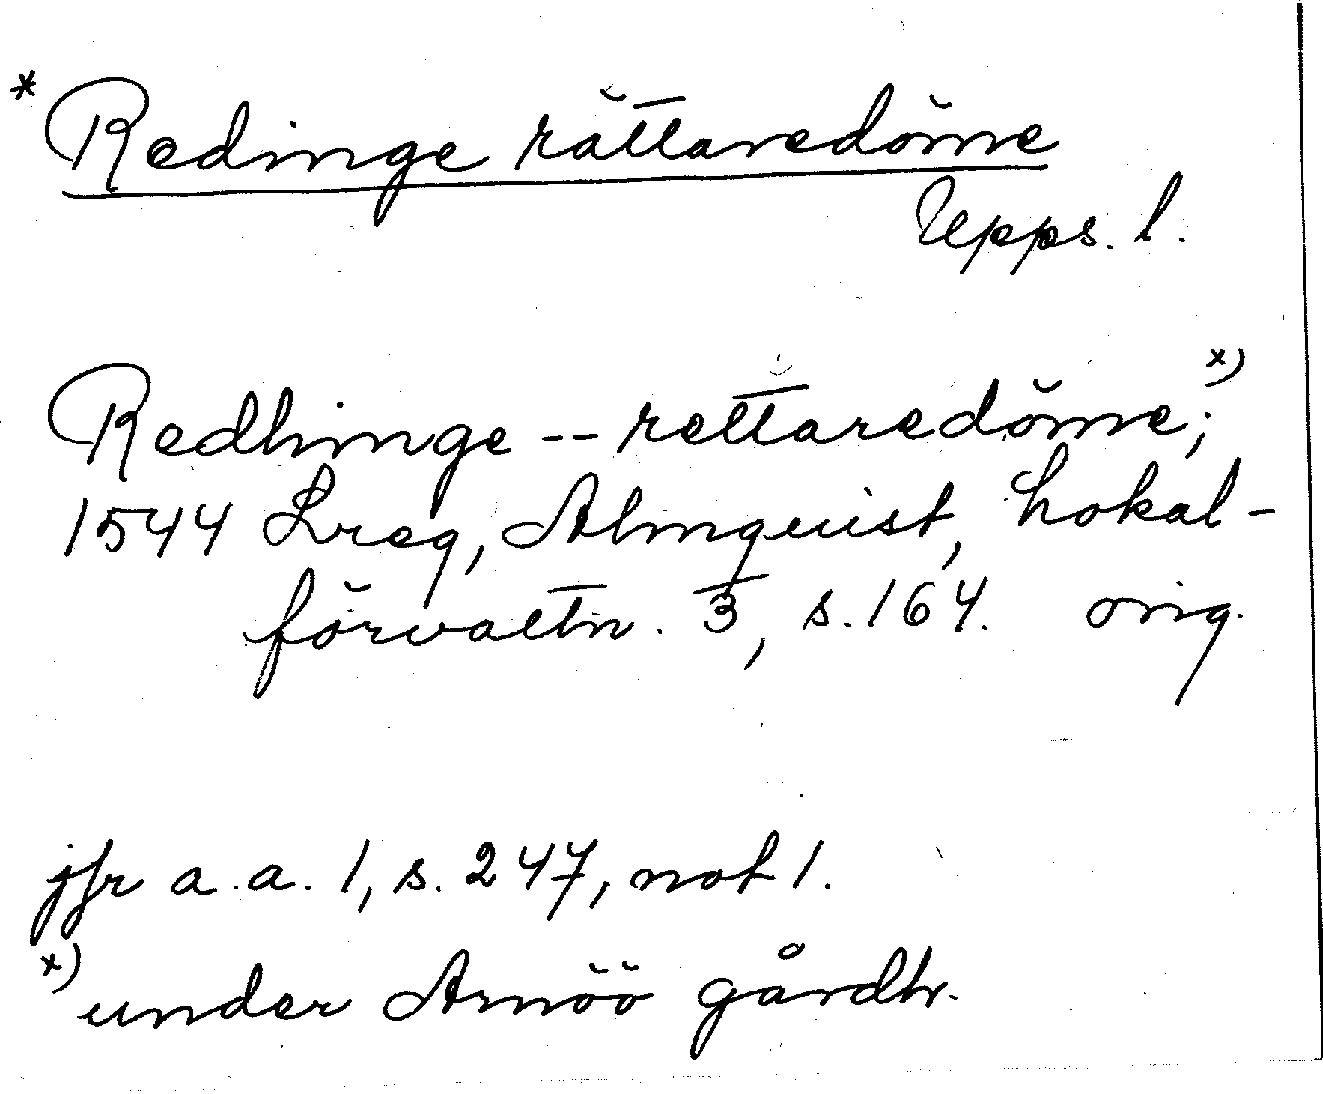 * Redinge rättaredöme
Upps. l.
Redhinge -- rettaredöme; x)
1544 Lreg, Almquist, Lokal-
förvaltn. 3, s. 164. orig.
jfr a.a. 1, s. 247, not 1.
x) under Arnöö gårdh.